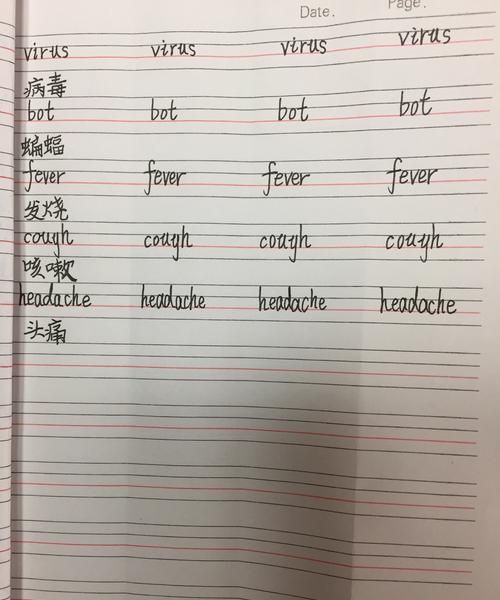 Date. Page.
virus virus virus virus
病毒
bot bot bot bot
蝙蝠
fever fever fever fever
发烧
cough cough cough cough
咳嗽
headache headache headache headache
头痛